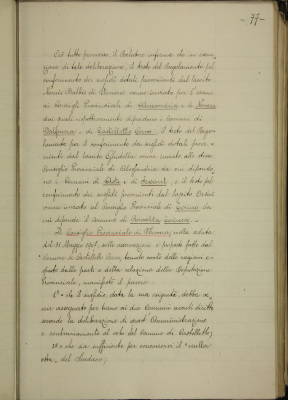 - 77 -
Ciò tutto premesso, il Relatore informa che in esecu-
zione di tale deliberazione, il testo del Regolamento pel
conferimento dei sussidi dotali provenienti dal lascito
venne inviato per l'esame
ai Consigli Provinciali di Alessandria e di Novara
dai quali rispettivamente dipendono i Comuni di
e di Castelletto; il testo del Rego-
lamento per il conferimento dei sussidi dotali prove-
nienti dal lascito venne inviato allo stesso
Consiglio Provinciale di Alessandria da cui dipendo-
no i Comuni di e di, e il testo pel
conferimento dei sussidi provenienti dal lascito
venne inviato al Consiglio Provinciale di Torino da
cui dipende il Comune di
Il Consiglio Provinciale di Novara, nella seduta
del 31 Maggio 1901, sulle osservazioni e proposte fatte dal
Comune di Castelletto, tenuto conto delle ragioni es-
poste dalle parti e della relazione della Deputazione
Provinciale, manifestò il parere:
1° - che il sussidio, data la sua esiguità, debba es-
ser assegnato per turno ai due Comuni aventi diritto
secondo la deliberazione di Amministrazione
e contrariamente al voto del Comune di Castelletto;
2° - che sia sufficiente per concorrervi il "nulla
osta" del Sindaco;